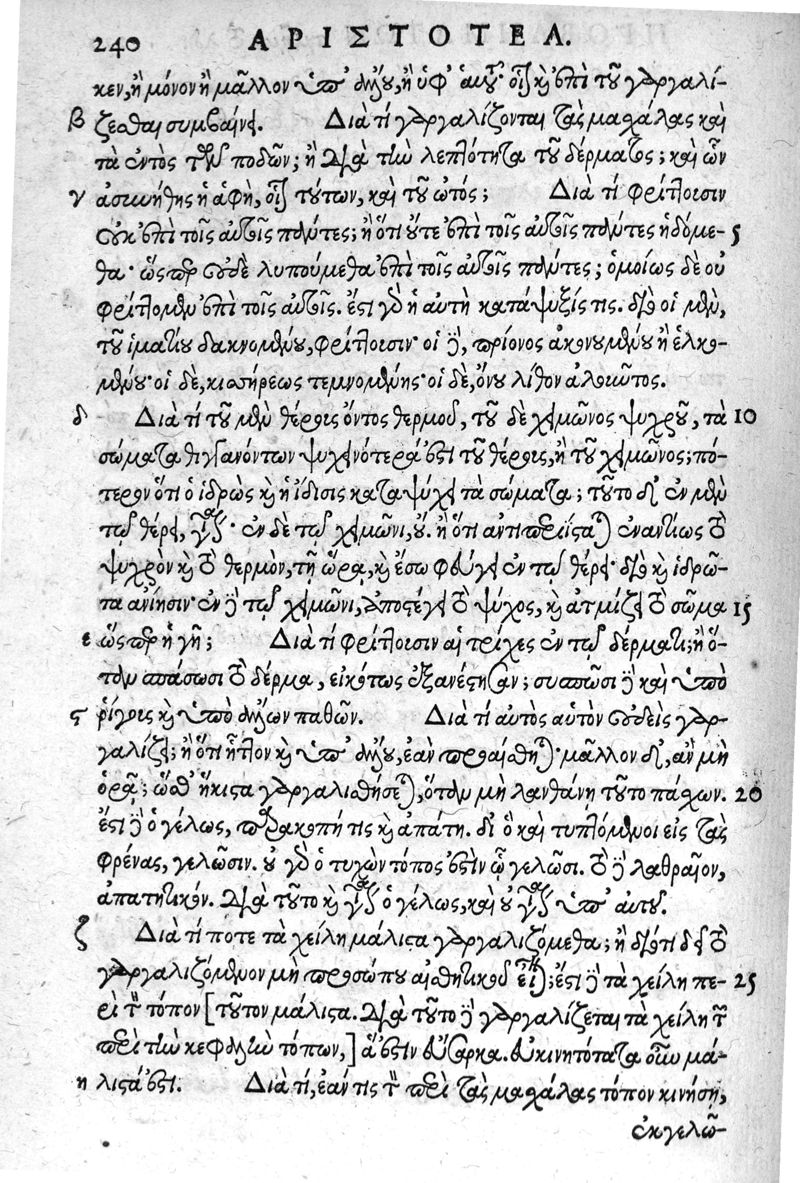 240 ΑΡΙΣΤΟΤΕΛ.
κεν, ἢ μόνον ἢ μᾶλλον ὑπ' ἄλλου, ἢ ὑφ' αὑτοῦ· οἷον καὶ ἐπὶ τοῦ γαργαλί-
β ζεσθαι συμβαίνει. Διὰ τί γαργαλίζονται τὰς μασχάλας καὶ
τὰ ἐντὸς τῶν ποδῶν; ἢ διὰ τὴν λεπτότητα τοῦ δέρματος; καὶ ὧν
γ ἀσυνήθης ἡ ἁφὴ, οἷον τούτων, καὶ τοῦ ὠτός; Διὰ τί φρίττουσιν
οὐκ ἐπὶ τοῖς αὐτοῖς πάντες; ἢ ὅτι οὔτε ἐπὶ τοῖς αὐτοῖς πάντες ἡδόμε- 5
θα· ὥσπερ οὐδὲ λυπούμεθα ἐπὶ τοῖς αὐτοῖς πάντες; ὁμοίως δὲ οὐ
φρίττομεν ἐπὶ τοῖς αὐτοῖς. ἔστι γὰρ ἡ αὐτὴ κατάψυξίς τις. διὸ οἱ μὲν,
τοῦ ἱματίου δακνομένου, φρίττουσιν· οἱ δὲ, πρίονος ἀκονουμένου ἢ ἑλκο-
μένου· οἱ δὲ, κισσήρεως τεμνομένης· οἱ δὲ, ὄνου λίθον ἀλοῦντος.
δ Διὰ τί τοῦ μὲν θέρους ὄντος θερμοῦ, τοῦ δὲ χειμῶνος ψυχροῦ, τὰ 10
σώματα θιγγανόντων ψυχεινότερά ἐστι τοῦ θέρους, ἢ τοῦ χειμῶνος; πό-
τερον ὅτι ὁ ἱδρὼς καὶ ἡ ἴδισις καταψύχει τὰ σώματα; τοῦτο δ' ἐν μὲν
τῷ θέρει, γίνεται· ἐν δὲ τῷ χειμῶνι, οὔ. ἢ ὅτι ἀντιπεριίσταται ἐναντίως τὸ
ψυχρὸν καὶ τὸ θερμὸν, τῇ ὥρᾳ, καὶ ἔσω φεύγει ἐν τῷ θέρει· διὸ καὶ ἱδρῶ-
τα ἀνίησιν· ἐν δὲ τῷ χειμῶνι, ἀποστέγει τὸ ψύχος, καὶ ἀτμίζει τὸ σῶμα 15
ε ὥσπερ ἡ γῆ; Διὰ τί φρίττουσιν αἱ τρίχες ἐν τῷ δέρματι; ἢ ὅ-
ταν σπάσωσι τὸ δέρμα, εἰκότως ἐξανέστησαν; συσπῶσι δὲ καὶ ὑπὸ
ϛ ῥίγους καὶ ὑπὸ ἄλλων παθῶν. Διὰ τί αὐτὸς αὑτὸν οὐδεὶς γαρ-
γαλίζει; ἢ ὅτι ἧττον καὶ ὑπ' ἄλλου, ἐὰν προαίσθηται· μᾶλλον δ', ἂν μὴ
ὁρᾷ; ὥσθ' ἥκιστα γαργαλισθήσεται, ὅταν μὴ λανθάνῃ τοῦτο πάσχων. 20
ἔστι δὲ ὁ γέλως, παρακοπή τις καὶ ἀπάτη. δι' ὃ καὶ τυπτόμενοι εἰς τὰς
φρένας, γελῶσιν. οὐ γὰρ ὁ τυχὼν τόπος ἐστὶν ᾧ γελῶσι. τὸ δὲ λαθραῖον,
ἀπατητικόν. διὰ τοῦτο καὶ γίνεται ὁ γέλως, καὶ οὐ γίνεται ὑπ' αὐτοῦ.
ζ Διὰ τί ποτε τὰ χείλη μάλιστα γαργαλιζόμεθα; ἢ διότι δεῖ τὸ
γαργαλιζόμενον μὴ πρόσω τοῦ αἰσθητικοῦ εἶναι; ἔστι δὲ τὰ χείλη πε- 25
ρὶ τὸν τόπον [τοῦτον μάλιστα. διὰ τοῦτο δὲ γαργαλίζεται τὰ χείλη τῶν
περὶ τὴν κεφαλὴν τόπων,] ἅ ἐστιν εὔσαρκα. εὐκινητότατα οὖν μά-
η λιστά ἐστι. Διὰ τί, ἐάν τις τὸν περὶ τὰς μασχάλας τόπον κινήσῃ,
ἐκγελῶ-